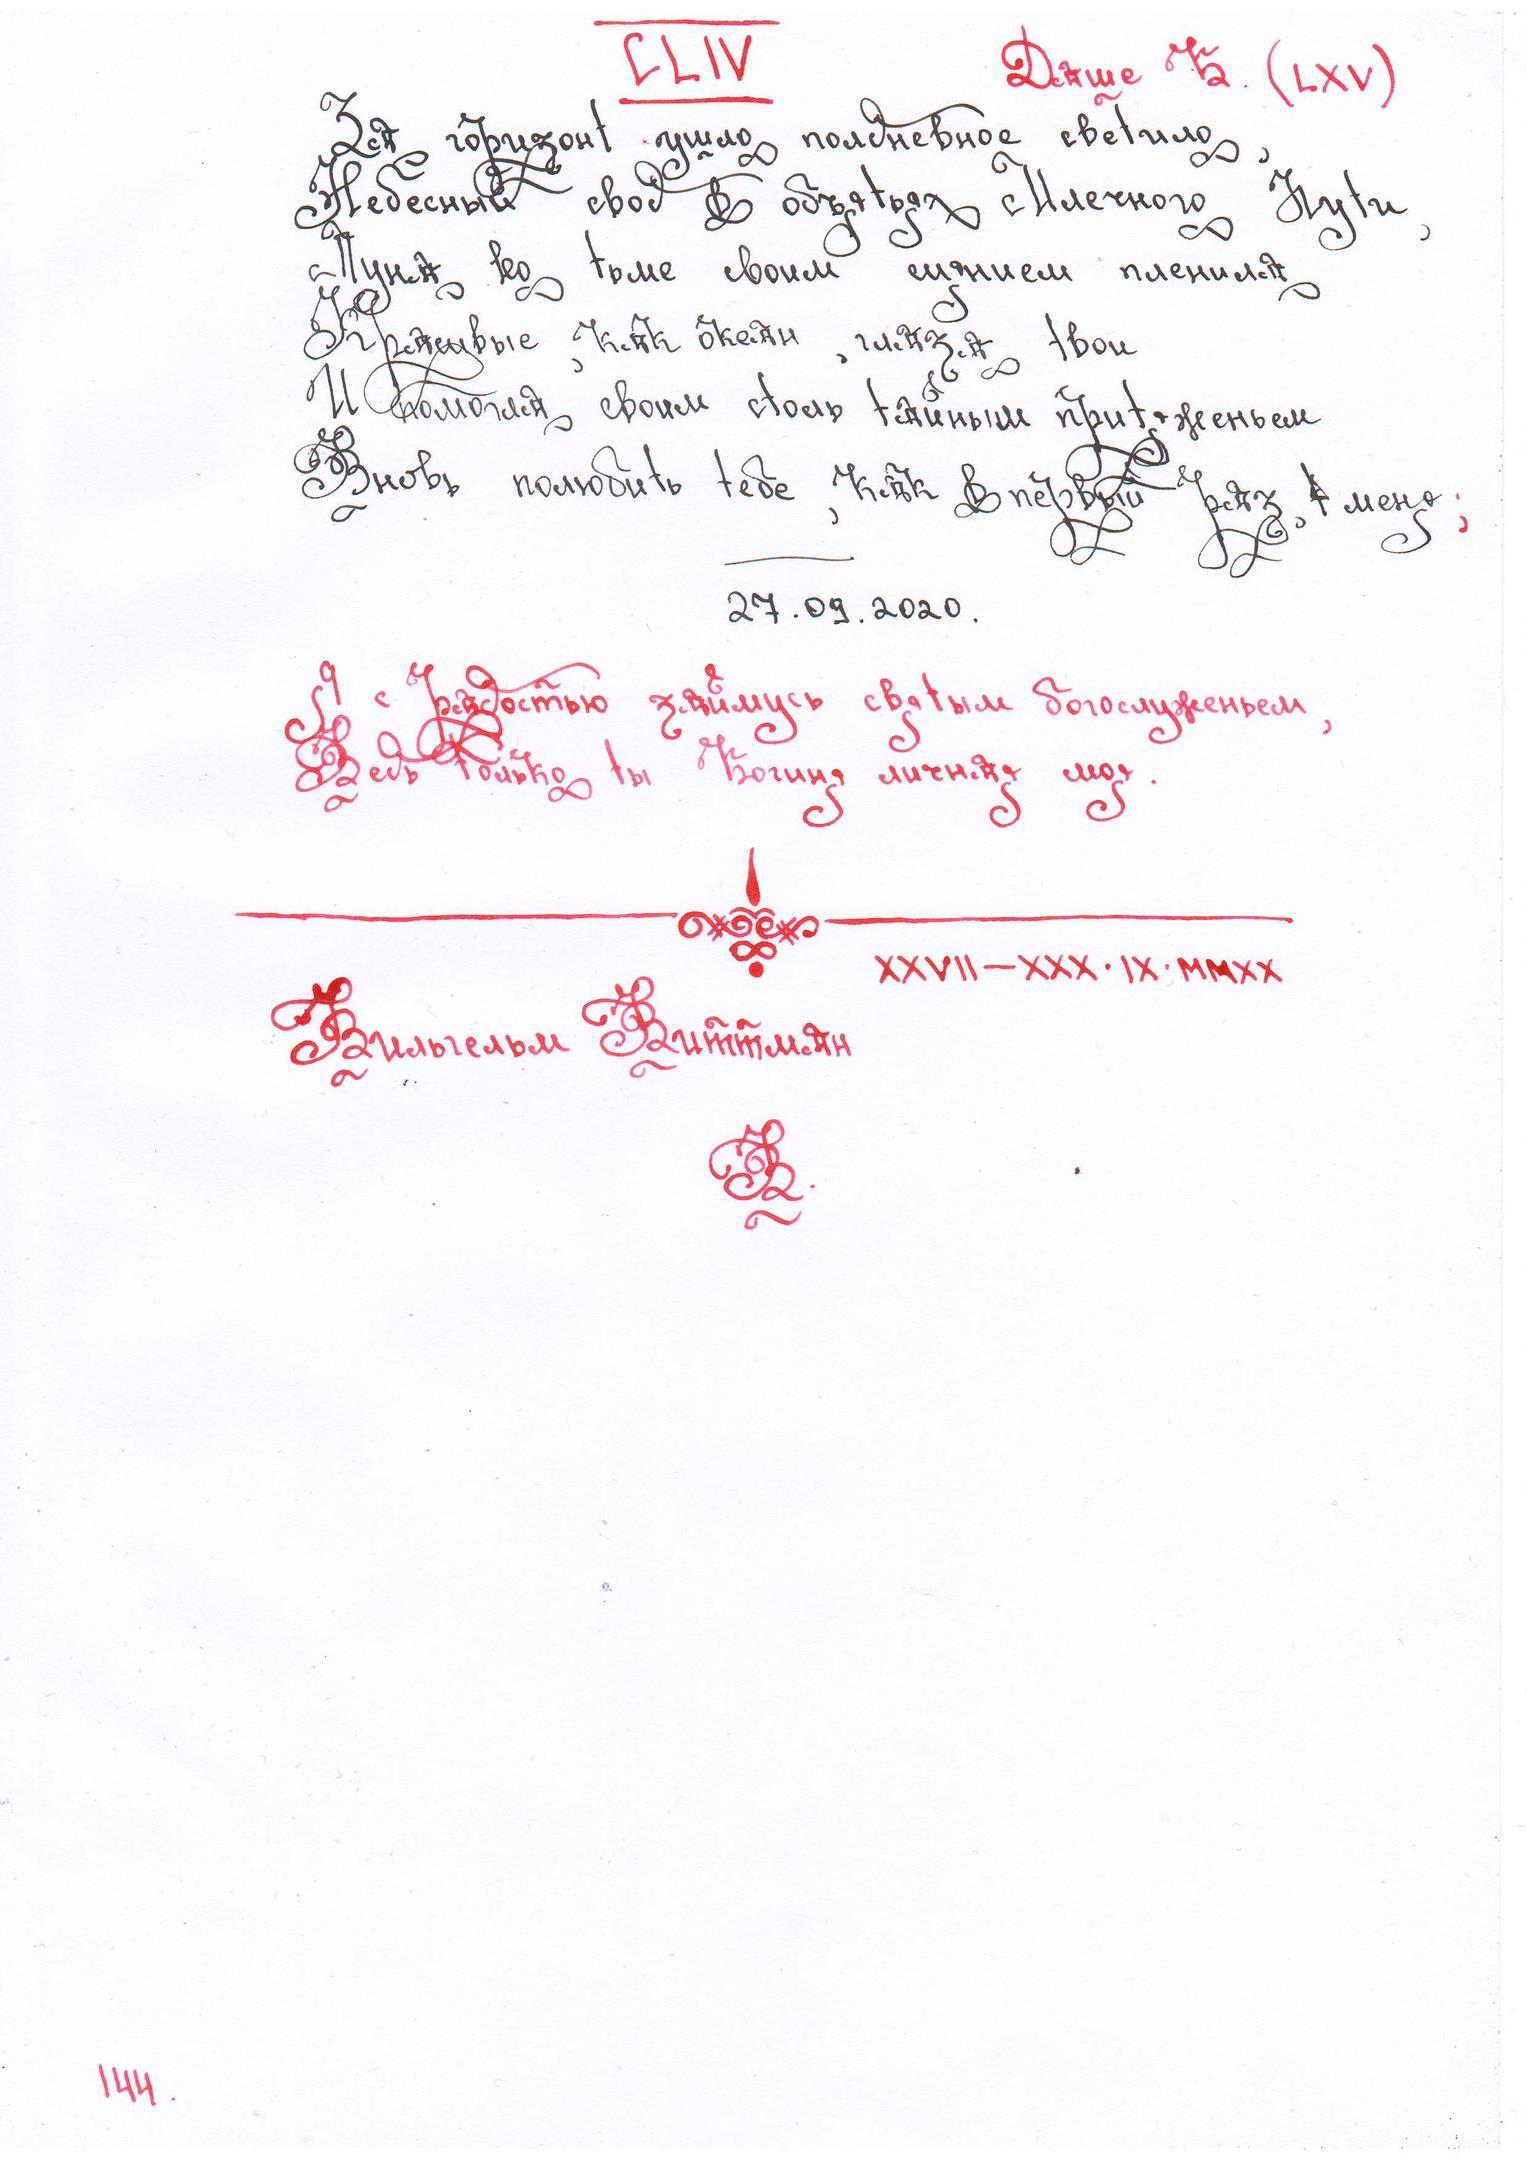 CLIV
Даше К. (LXV)
За горизонт ушло полдневное светило,
Небесный свод в объятьях Млечного Пути,
Луна во тьме своим сиянием пленила
Красивые, как океан, глаза твои
И помогла своим столь тайным притяженьем
Вновь полюбить тебе, как в первый раз, меня;
27.09.2020.
Я с радостью займусь святым богослуженьем,
Ведь только ты Богиня личная моя.
XXVII-XXX·IX·MMXX
Вильгельм Виттман
В.
144.